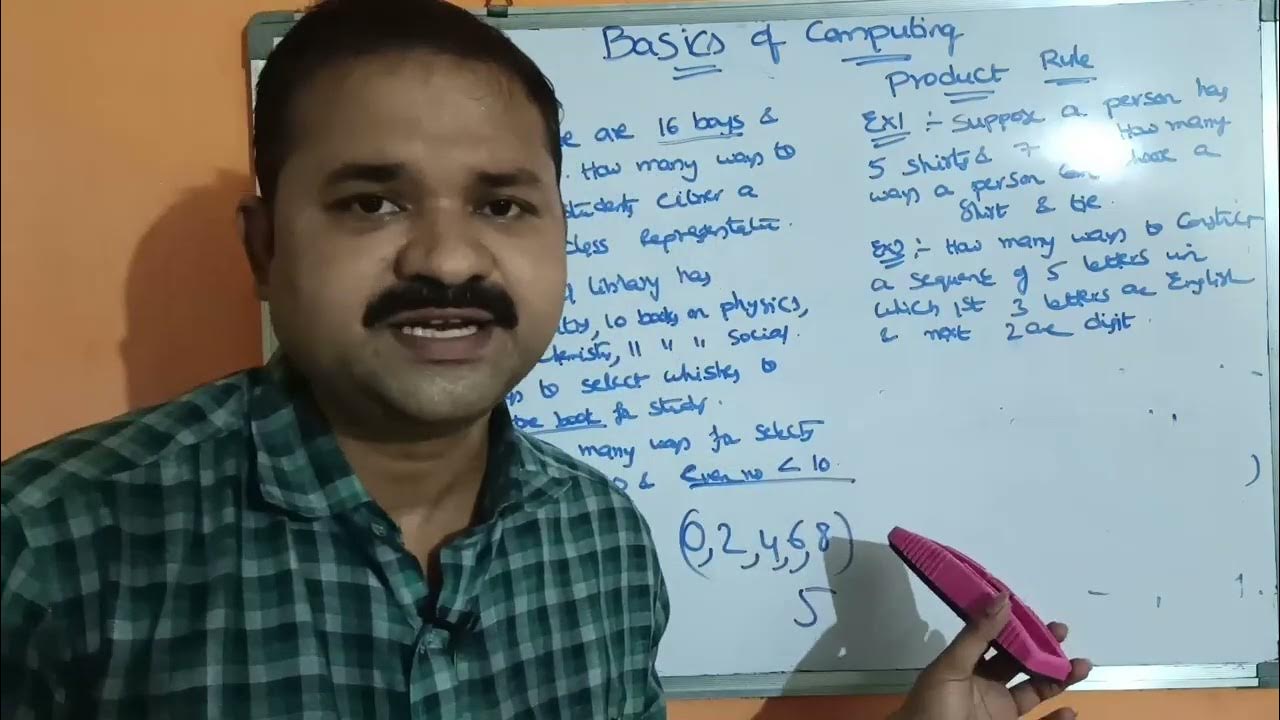 Basics of Computing
Product Rule
are 16 boys &
. How many ways to
students either a
class Representative.
library has
, 10 books on physics,
, 11 " " social.
to select whishes to
book for study.
many ways for selects
& Even no < 10.
(0,2,4,6,8)
5
Ex1 :- Suppose a person has
5 shirts & 7 How many
ways a person can a
Shirt & tie.
Ex2 :- How many ways to
a sequent of 5 letters in
which 1st 3 letters are English
& next 2 are digit.